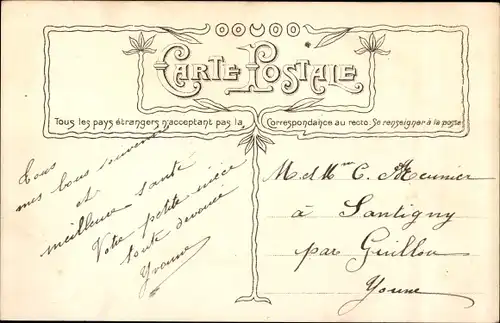 CARTE POSTALE
Tous les pays étrangers n'acceptant pas la Correspondance au recto. Se renseigner à la poste
Tous
mes bons souvenirs
et
meilleure santé
Votre petite nièce
toute dévouée
Yvonne
M. et Mme C. Meunier
à Santigny
par Guillon
Yonne